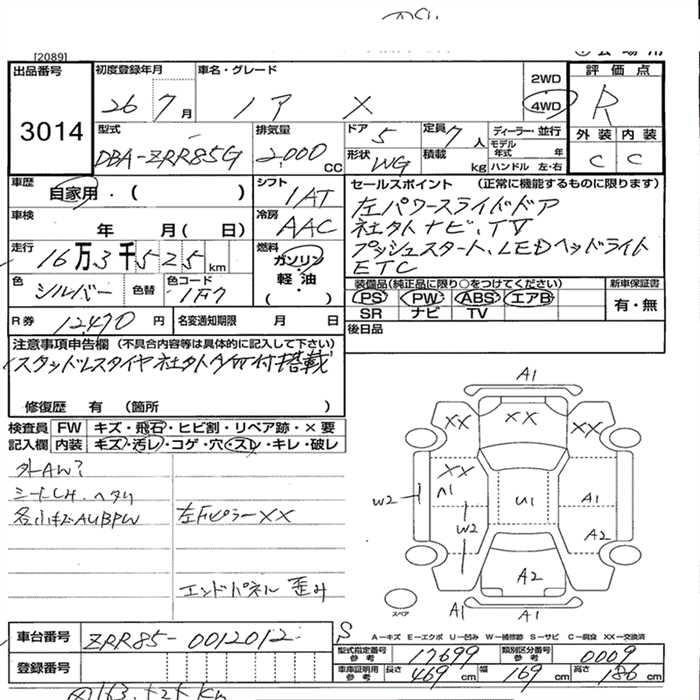 [2089]
出品番号
3014
初度登録年月
26 7月
車名・グレード
ノア X
2WD
4WD
評価点
R
外装 内装
C C
型式
DBA-ZRR85G
排気量
2,000 CC
ドア 5
定員 7人
形状 WG
積載 kg
ディーラー・並行
モデル年式 年
ハンドル 左・右
車歴
自家用・( )
シフト
IAT
車検
年 月( 日)
冷房
AAC
走行
16万3千525km
燃料
ガソリン
・
軽油
・
( )
色
シルバー
色替
色コード
1F7
R券 12,470円
名変通知期限 月 日
セールスポイント (正常に機能するものに限ります)
左パワースライドドア
社外ナビ、TV
プッシュスタート、LEDヘッドライト
ETC
装備品(純正品に限り○をつけてください)
PS PW ABS エアB
SR ナビ TV
新車保証書
有・無
後日品
注意事項申告欄(不具合内容等は具体的に記入して下さい)
スタッドレスタイヤ社外AW付搭載
修復歴 有 (箇所 )
検査員記入欄
FW キズ・飛石・ヒビ割・リペア跡・×要
内装 キズ・汚レ・コゲ・穴・スレ・キレ・破レ
外AW?
シートLH、ヘタリ
各小キズAUBPW
左Fピラー XX
エンドパネル 歪み
A1
XX XX XX
XX
A1
W2
W2
U1
A1
A2
A2
A1
A1
スペア
S
A-キズ E-エクボ U-凹み W-補修跡 S-サビ C-腐食 XX-交換済
車台番号
ZRR85-0012012
登録番号
型式指定番号 参考 17699
類別区分番号 参考 0009
車庫証明用 参考 長さ 469cm 幅 169cm 高さ 186cm